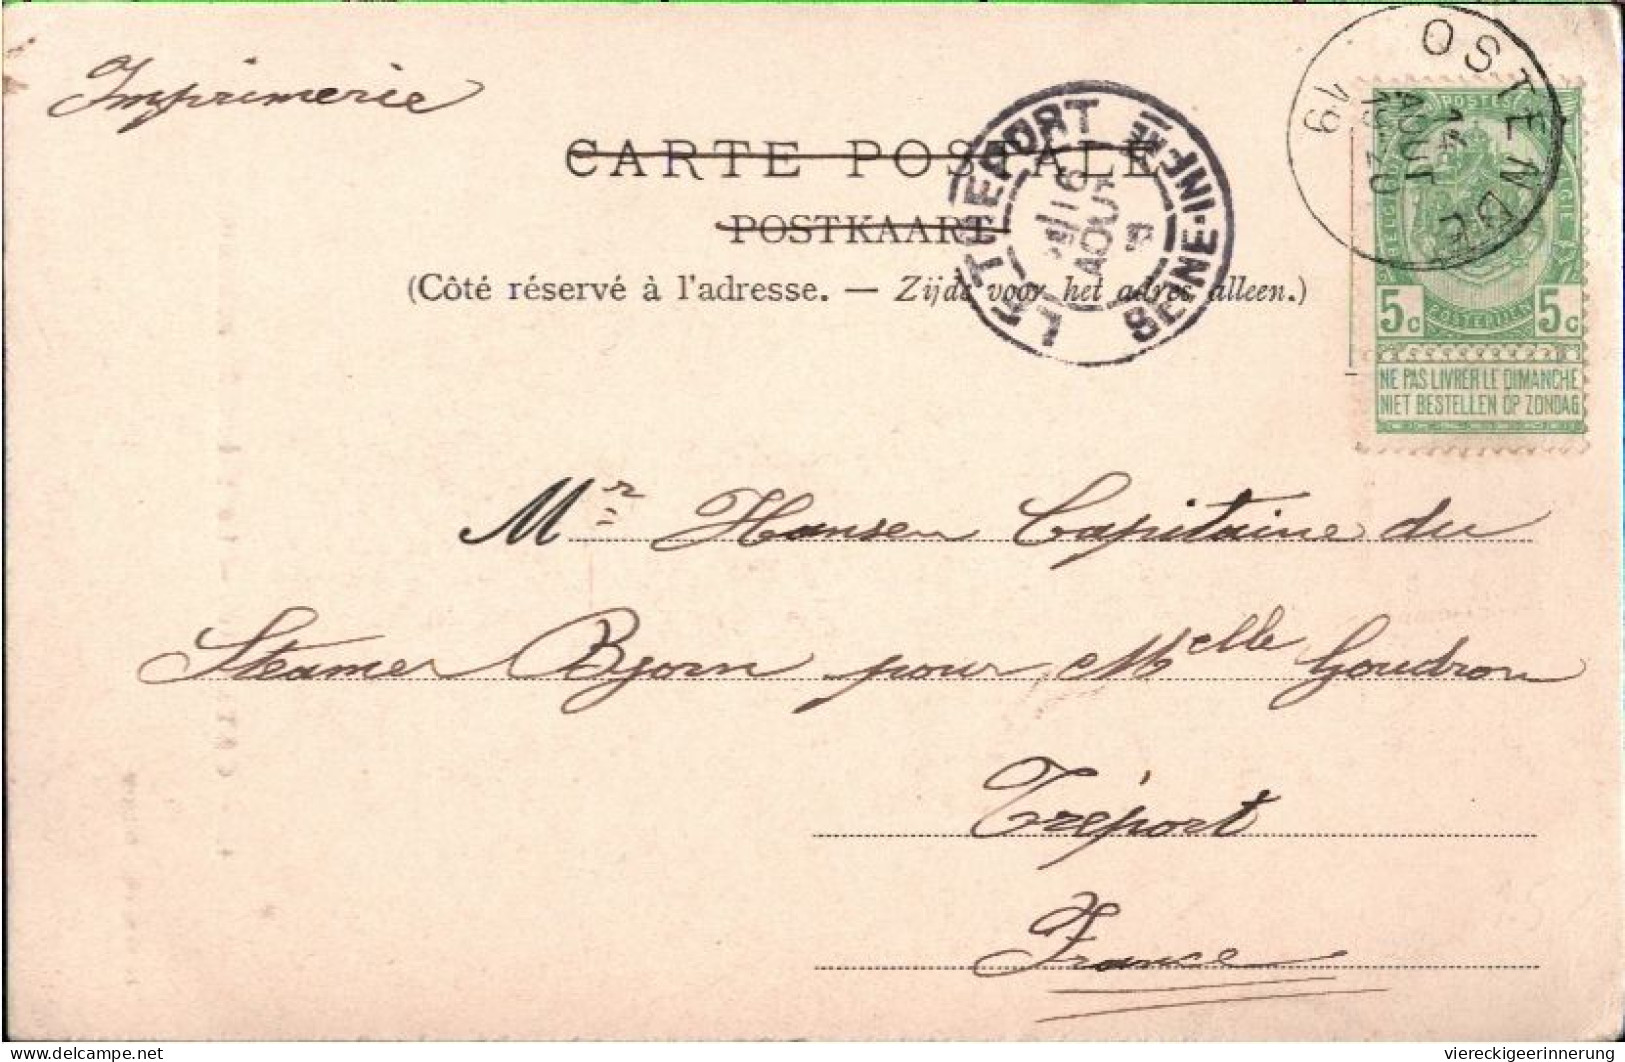 Imprimerie
CARTE POSTALE
POSTKAART
(Côté réservé à l'adresse. — Zijde voor het adres alleen.)
LE TRÉPORT SEINE-INFRE
16
AOUT
OSTENDE
14
AOUT
19
POSTES
POSTERIJEN
5c 5c
NE PAS LIVRER LE DIMANCHE
NIET BESTELLEN OP ZONDAG
Mr Hansen Capitaine du
Steamer Bjorn pour Melle Goudron
Tréport
France
delcampe.net
viereckigeerinnerung